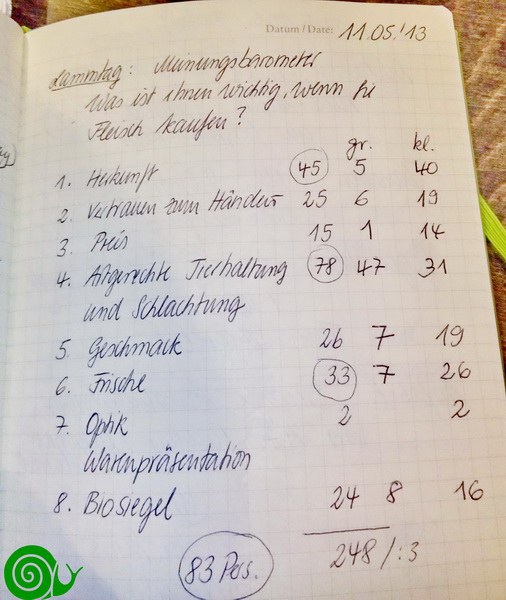 Datum / Date: 11.05.'13
Lammtag: Meinungsbarometer
Was ist Ihnen wichtig, wenn Sie
Fleisch kaufen?
gr. kl.
1. Herkunft 45 5 40
2. Vertrauen zum Händler 25 6 19
3. Preis 15 1 14
4. Artgerechte Tierhaltung 78 47 31
und Schlachtung
5. Geschmack 26 7 19
6. Frische 33 7 26
7. Optik 2 2
Warenpräsentation
8. Biosiegel 24 8 16
248 / : 3
83 Pers.